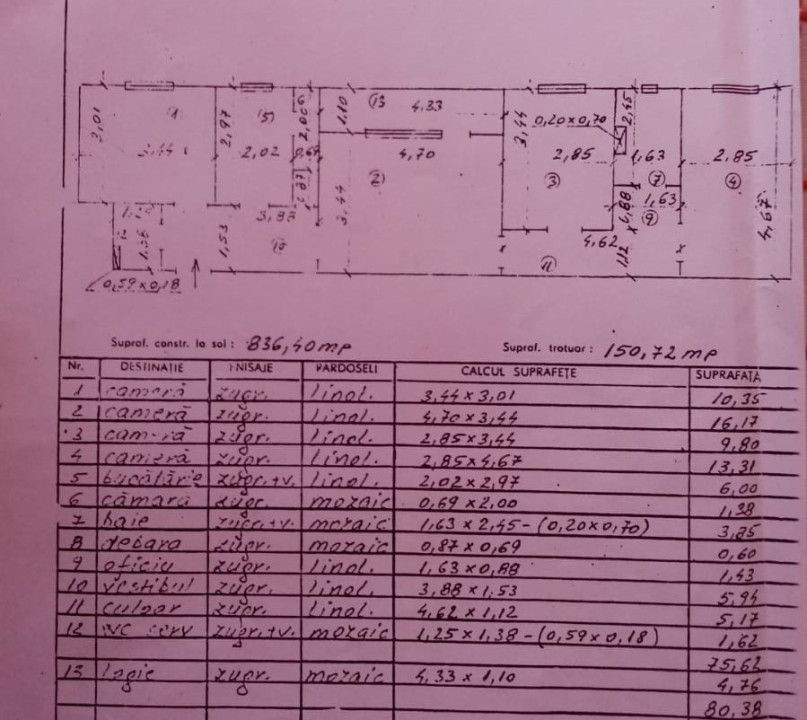 1
5
13
4,33
3,01
2,97
2,00
1,10
3,44
0,20x0,70
2,45
3,44
2,02
0,69
4,70
2,85
1,63
2,85
0,87
2
3
7
4
3,44
1,63
9
1,25
3,88
12
1,38
1,53
10
4,62
1,12 x 0,88
4,67
11
0,59x0,18
Supraf. constr. la sol : 836,40 mp Supraf. trotuar : 150,72 mp
Nr. DESTINAȚIE FINISAJE PARDOSELI CALCUL SUPRAFEȚE SUPRAFAȚĂ
1 cameră zugr. linol. 3,44 x 3,01 10,35
2 cameră zugr. linol. 4,70 x 3,44 16,17
3 cameră zugr. linol. 2,85x3,44 9,80
4 cameră zugr. linol. 2,85x4,67 13,31
5 bucătărie zugr.+v. linol. 2,02 x 2,97 6,00
6 cămara zugr. mozaic 0,69 x 2,00 1,38
7 baie zugr.+v. mozaic 1,63 x 2,45 - (0,20x0,70) 3,85
8 debara zugr. mozaic 0,87 x 0,69 0,60
9 oficiu zugr. linol. 1,63x0,88 1,43
10 vestibul zugr. linol. 3,88 x 1,53 5,94
11 culoar zugr. linol. 4,62 x 1,12 5,17
12 WC serv zugr.+v. mozaic 1,25 x 1,38 - (0,59 x 0,18) 1,62
75,62
13 logie zugr. mozaic 4,33 x 1,10 4,76
80,38